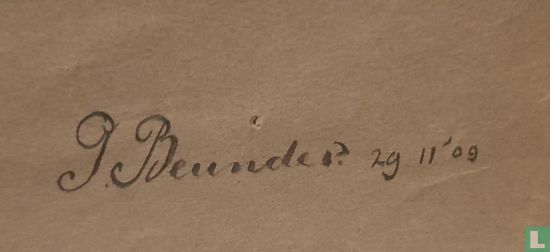 P. Beunder. 29 11 '09